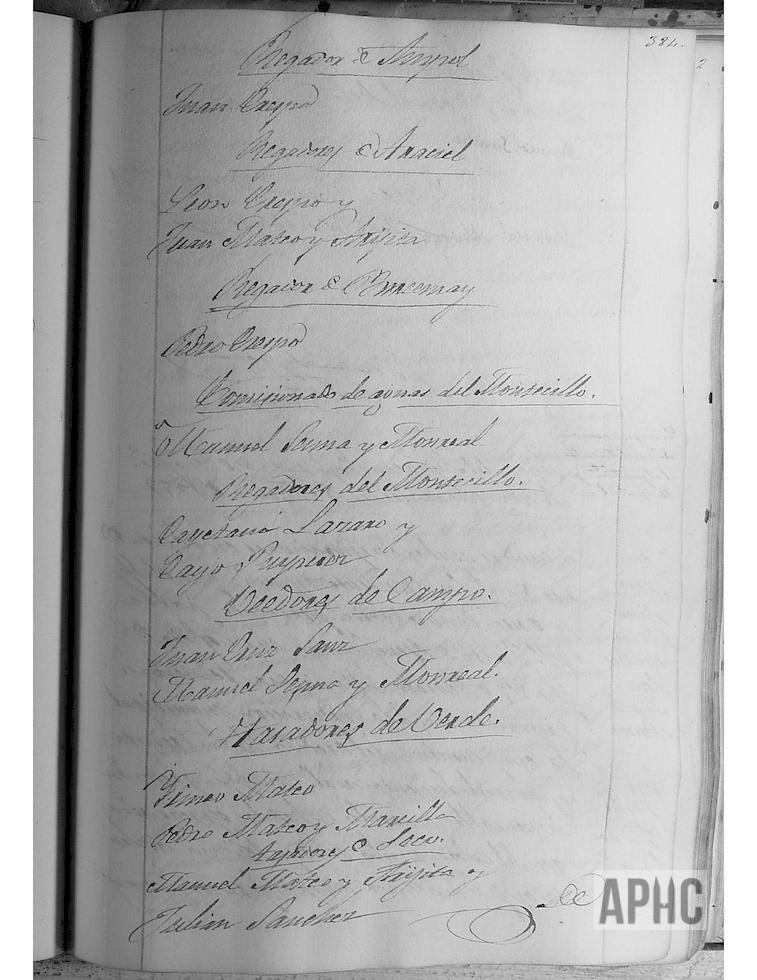 384.
2
Regador de
Juan Crespo
Regadores de Araciel
Leon Crespo y
Juan Mateo y Arijita
Regador de
Pedro Crespo
Comisionado de aguas del Montecillo.
Manuel Sesma y Monreal
Regadores del Montecillo.
Cayetano Lazaro y
Cayo
Veedores de Campo.
Juan Cruz Sanz
Manuel Sesma y Monreal.
Tasadores de Verde.
Mateo
Pedro Mateo y Marcilla
de
Manuel Mateo y Arijita y
Julian Sanchez
APHC